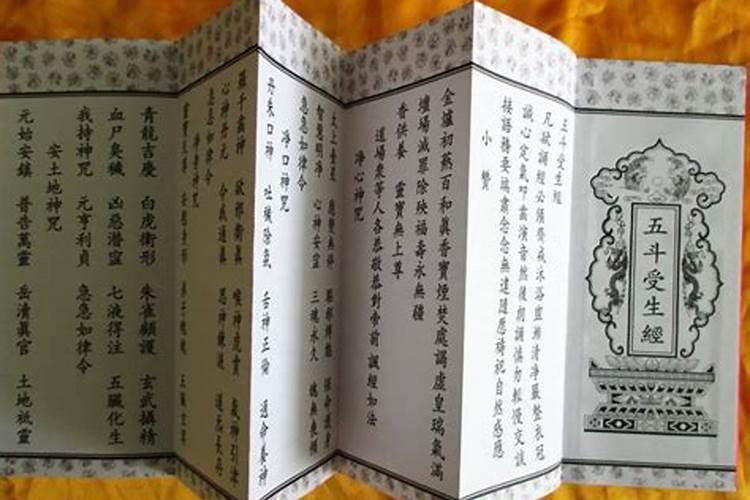 五斗受生經
五斗受生經
凡欲誦經必須齋戒沐浴盥漱清淨嚴整衣冠
誠心定氣叩齒演音然後朗誦慎勿輕慢交談
接語務要端肅念念無違隨愿禱祀自然感應
小 讚
金爐初爇百和眞香寶煙焚處謁虛皇瑞氣滿
壇場滅罪除殃福壽永無疆
香供養 靈寶無上尊
道場衆等人各恭敬恭對帝前 誦經如法
淨心神咒
太上台星 應變無停 驅邪縛魅 保命護身
智慧明淨 心神安寧 三魂永久 魄無喪傾
急急如律令
淨口神咒
丹朱口神 吐穢除氛 舌神正倫 通命養神
羅千齒神 卻邪衛眞 喉神虎賁 氣神引津
心神丹元 令我通眞 思神鍊液 道炁長存
急急如律令
淨身神咒
靈寶天尊 安慰身形 弟子魂魄 五臟玄冥
青龍吉慶 白虎衛形 朱雀顧護 玄武攝精
血尸臭穢 凶惡潛窰 七液得注 五臟化生
我持神咒 元亨利貞 急急如律令
安土地神咒
元始安鎮 普告萬靈 岳清眞官 土地祇靈